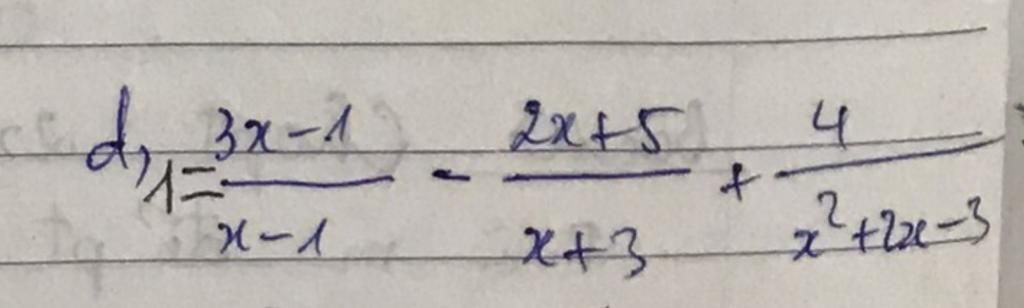 d, 1 = \frac{3x-1}{x-1} - \frac{2x+5}{x+3} + \frac{4}{x^2+2x-3}